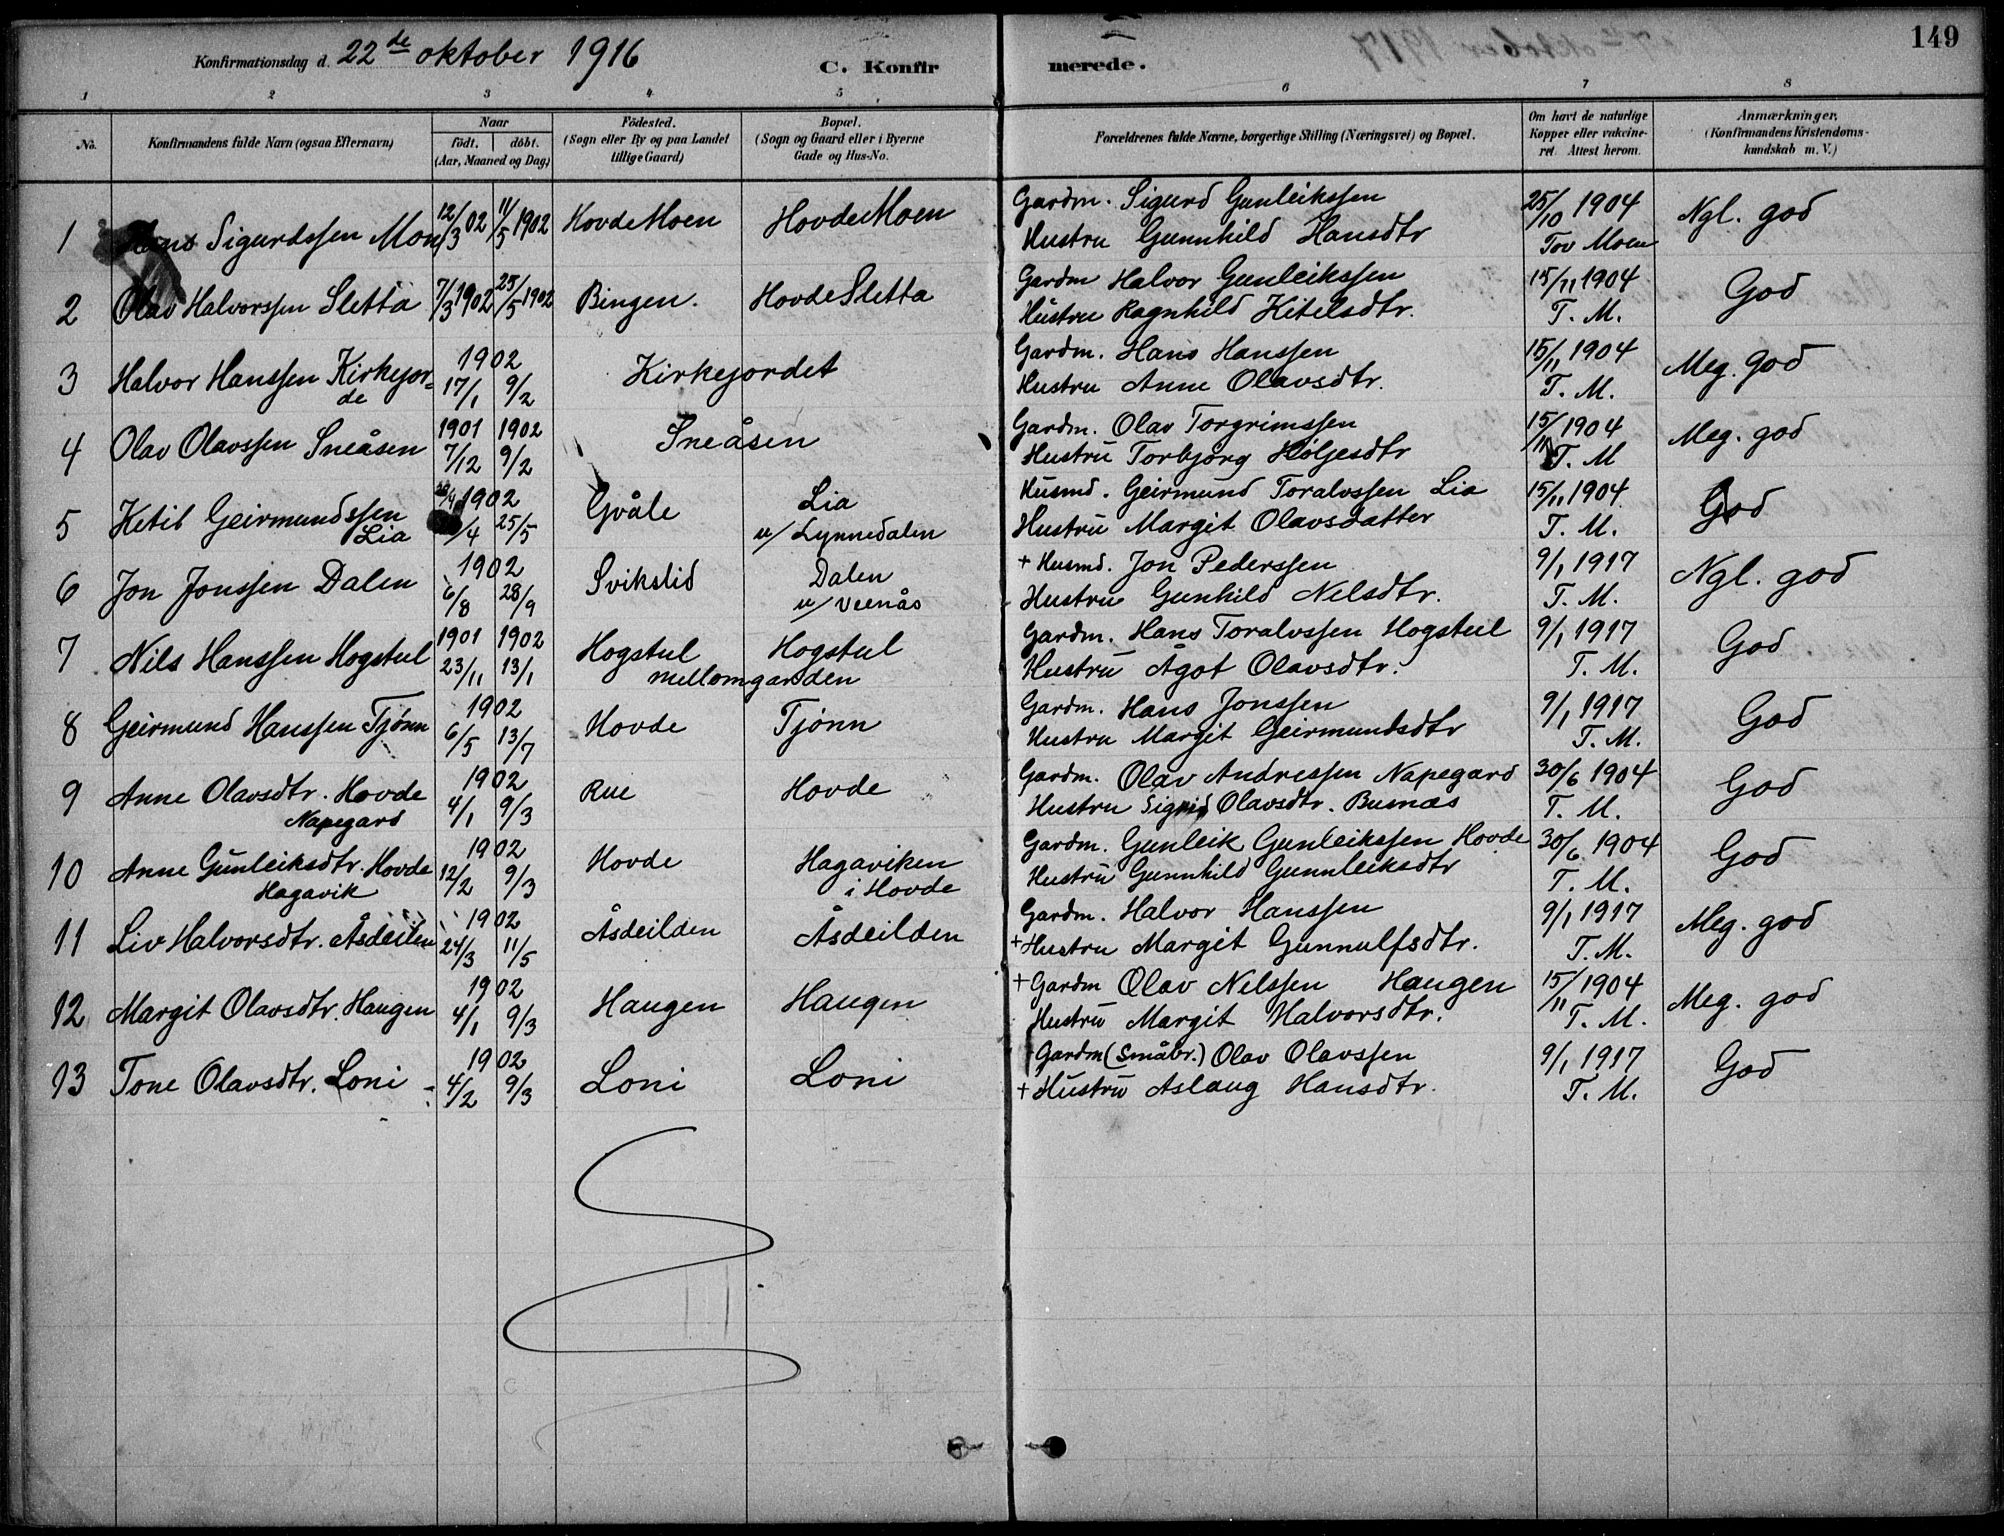 Konfirmationsdag d. 22de oktober 1916
C. Konfirmerede.
149
1 2 3 4 5 6 7 8
No.
Konfirmandens fulde Navn (ogsaa Efternavn)
Naar
födt. döbt.
(Aar, Maaned og Dag)
Födested.
(Sogn eller By og paa Landet
tillige Gaard)
Bopæl.
(Sogn og Gaard eller i Byerne
Gade og Hus-No.
Forældrenes fulde Navne, borgerlige Stilling (Næringsvei) og Bopæl.
Om havt de naturlige
Kopper eller vakcine-
ret. Attest herom.
Anmærkninger.
(Konfirmandens Kristendoms-
kundskab m. V.)
1 Hans Sigurdssen Moen 12/3 02 11/5 1902 Hovde Moen Hovde Moen Gardm. Sigurd Gunleikssen 25/10 1904 Ngl. god
Hustru Gunnhild Hansdtr Tov Moen
2 Olav Halvorssen Sletta 7/3 1902 25/5 1902 Bingen. Hovde Sletta Gardm Halvor Gunleikssen 15/11 1904 God
Hustru Ragnhild Kitelsdtr. T. M.
3 Halvor Hanssen Kirkejor- 1902 Kirkejordet Gardm. Hans Hanssen 15/11 1904 Meg. god
de 17/1 9/2 Hustru Anne Olavsdtr. T. M.
4 Olav Olavssen Sneåsen 1901 1902 Sneåsen Gardm. Olav Torgrimssen 15/11 1904 Meg. god
7/12 9/2 Hustru Torbjørg Høljesdtr T. M
5 Ketil Geirmundssen 1902 Gvåle Lia Husmd. Geirmund Toralvssen Lia 15/11 1904 God
Lia /4 25/5 u/ Lynnedalen Hustru Margit Olavsdatter T. M.
6 Jon Jonssen Dalen 1902 Svikslid Dalen + Husmd. Jon Pederssen 9/1 1917 Ngl. god
6/8 28/9 u/ Veenås Hustru Gunhild Nelsdtr. T. M.
7 Nils Hanssen Hogstul 1901 1902 Hogstul Hogstul Gardm. Hans Toralvssen Hogstul 9/1 1917 God
23/11 13/1 mellomgarden Hustru Ågot Olavsdtr. T. M.
8 Geirmund Hanssen Tjønn 1902 Hovde Tjønn Gardm. Hans Jonssen 9/1 1917 God
6/5 13/7 Hustru Margit Geirmundsdtr T. M.
9 Anne Olavsdtr. Hovde 1902 Rue Hovde Gardm. Olav Andressen Napegard 30/6 1904 God
Napegard 4/1 9/3 Hustru Sigrid Olavsdtr. Busnæs T. M.
10 Anne Gunleiksdtr. Hovde 1902 Hovde Hagaviken Gardm. Gunleik Gunleikssen Hovde 30/6 1904 God
Hagavik 12/2 9/3 i Hovde Hustru Gunnhild Gunnleiksdtr T. M.
11 Liv Halvorsdtr. Åsdeilen 1902 Åsdeilden Åsdeilden Gardm. Halvor Hanssen 9/1 1917 Meg. god
24/3 11/5 + Hustru Margit Gunnulfsdtr. T. M.
12 Margit Olavsdtr. Haugen 1902 Haugen Haugen + Gardm Olav Nelssen Haugen 15/11 1904 Meg. god
4/1 9/3 Hustru Margit Halvorsdtr. T. M.
13 Tone Olavsdtr. Loni 1902 Loni Loni Gardm (Småbr.) Olav Olavssen 9/1 1917 God
4/2 9/3 + Hustru Aslaug Hansdtr. T. M.